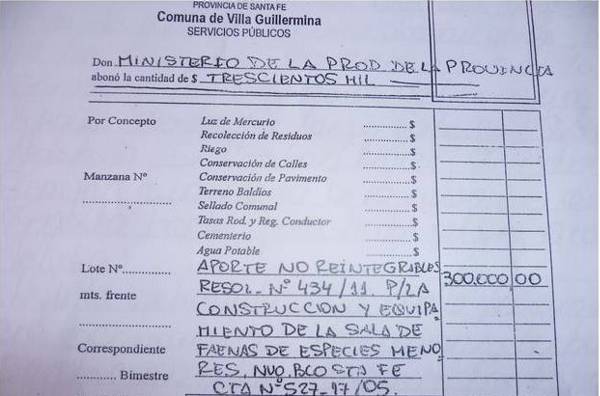 PROVINCIA DE SANTA FE
Comuna de Villa Guillermina
SERVICIOS PÚBLICOS
Don MINISTERIO DE LA PROD DE LA PROVINCIA
abonó la cantidad de $ TRESCIENTOS MIL
Por Concepto Luz de Mercurio .............. $
Recolección de Residuos .............. $
Riego .............. $
Conservación de Calles .............. $
Manzana Nº Conservación de Pavimento .............. $
.............................. Terreno Baldíos .............. $
Sellado Comunal .............. $
Tasas Rod. y Reg. Conductor .............. $
Cementerio .............. $
Agua Potable .............. $
Lote Nº............... APORTE NO REINTEGRABLES 300.000,00
mts. frente RESOL. Nº 434/11. P/LA
.............................. CONSTRUCCION Y EQUIPA
.............................. MIENTO DE LA SALA DE
Correspondiente FAENAS DE ESPECIES MENO
............ Bimestre RES. NUO. BCO STA FE
CTA Nº 527-17/05.